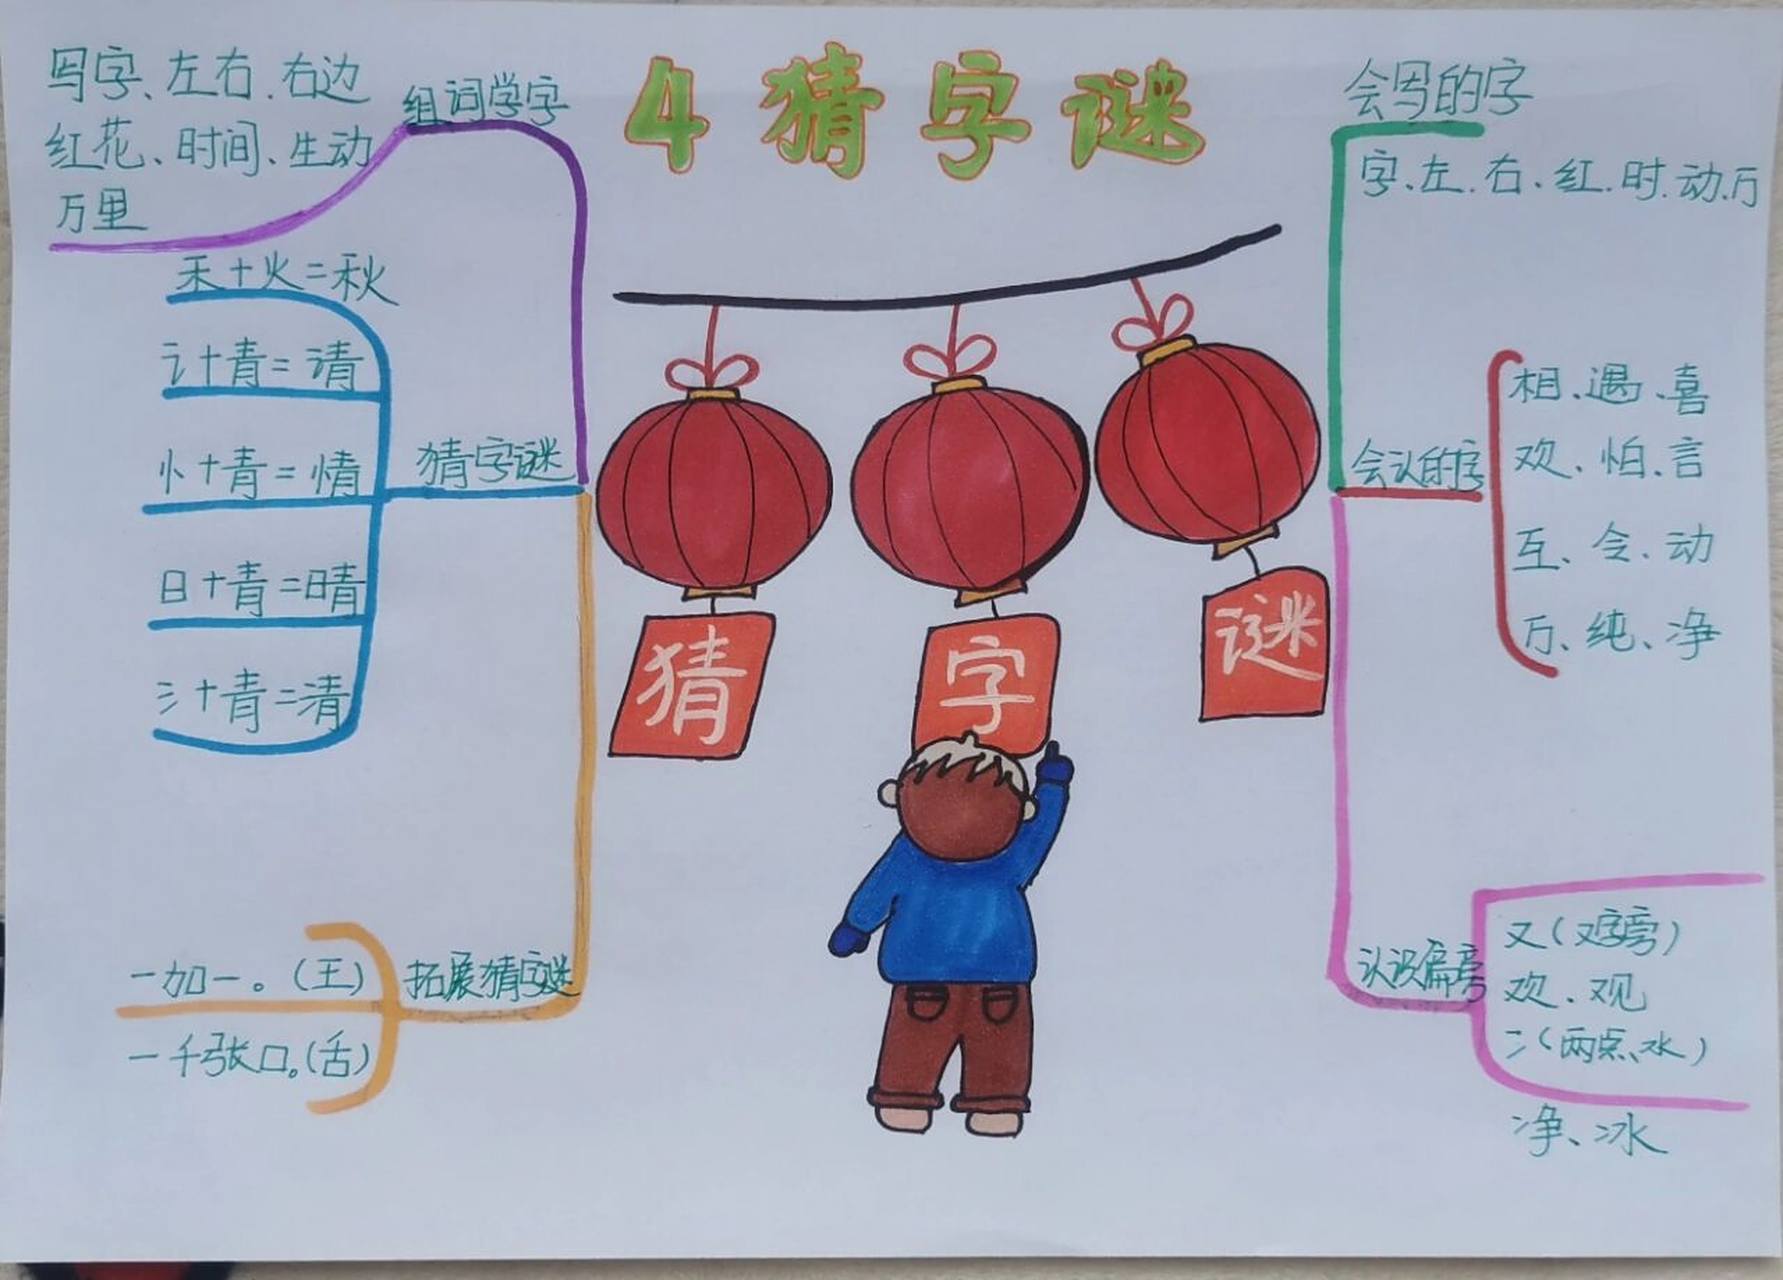 4 猜字谜
组词学字
写字、左右、右边
红花、时间、生动
万里
猜字谜
禾+火=秋
讠+青=请
忄+青=情
日+青=晴
氵+青=清
拓展猜字谜
一加一。(王)
一千张口。(舌)
猜
字
谜
会写的字
字、左、右、红、时、动、万
会认的字
相、遇、喜
欢、怕、言
互、令、动
万、纯、净
认识偏旁
又(又字旁)
欢、观
冫(两点水)
净、冰